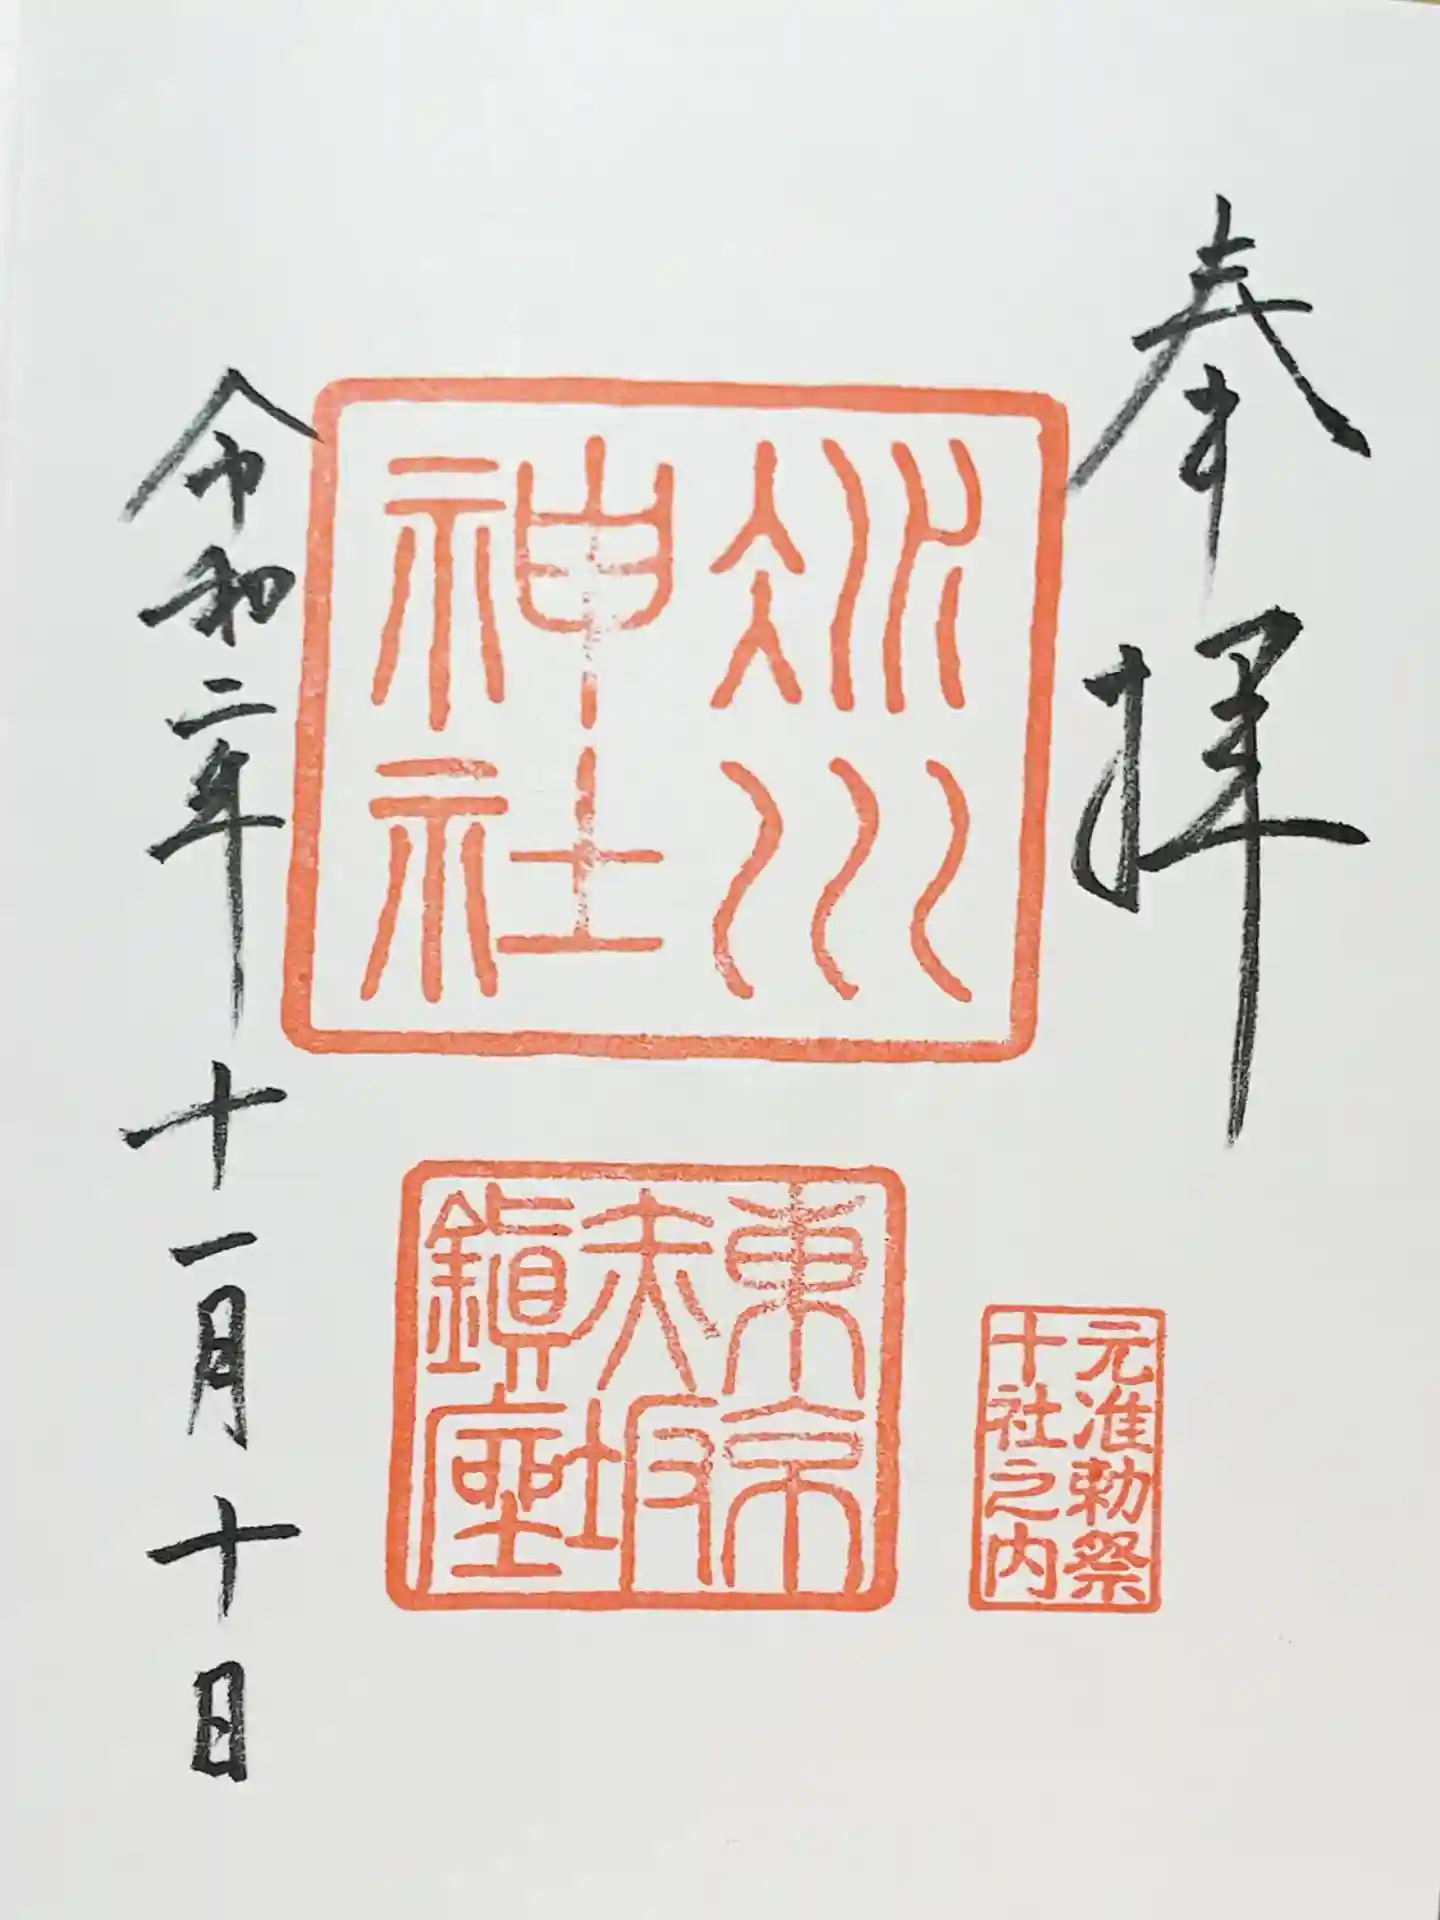 奉拝
氷川
神社
元准勅祭
十社之内
東京
赤坂
鎮座
令和二年十一月十日